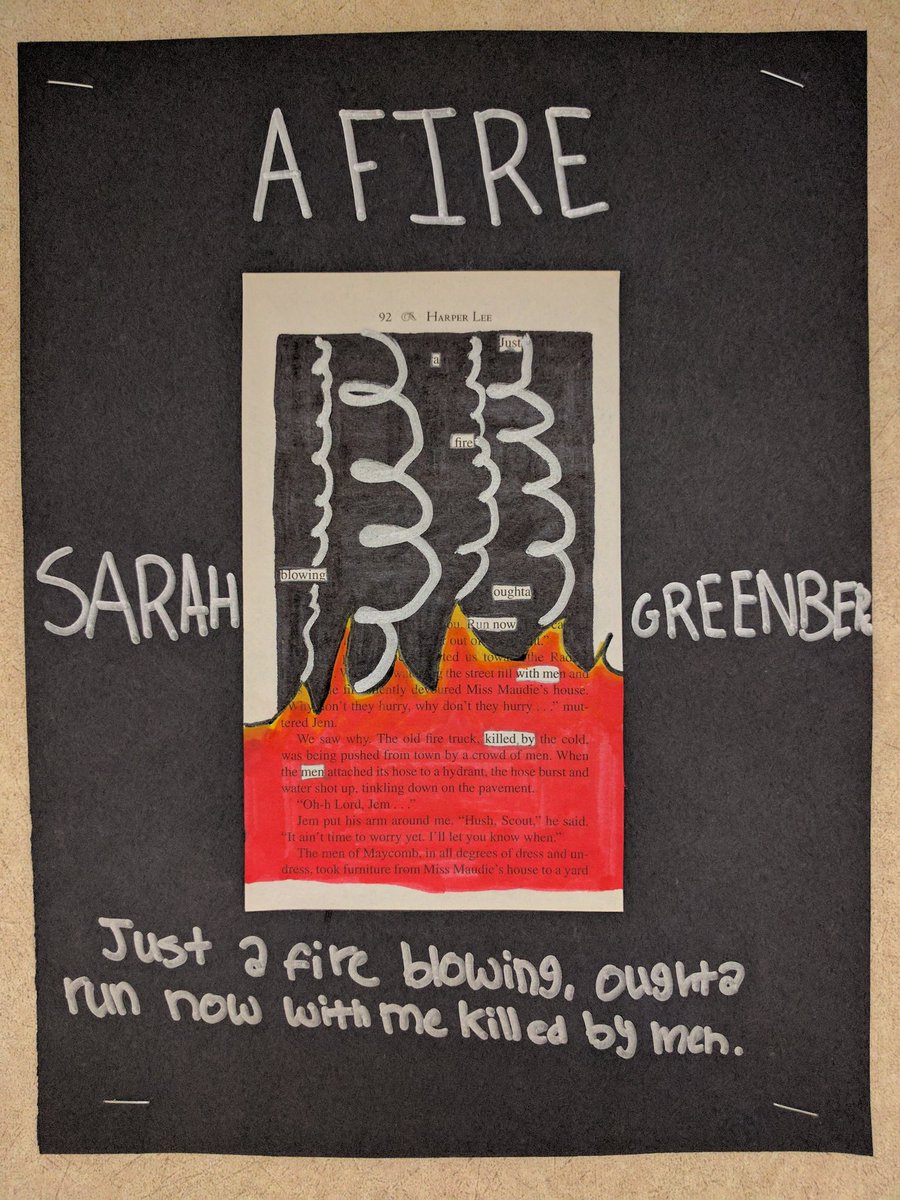 A FIRE
92 HARPER LEE
Just
a
fire
blowing
oughta
you. Run now
out of
us the
the street fill with men and
devoured Miss Maudie's house.
"Why don't they hurry, why don't they hurry . . ." mut-
tered Jem.
We saw why. The old fire truck, killed by the cold,
was being pushed from town by a crowd of men. When
the men attached its hose to a hydrant, the hose burst and
water shot up, tinkling down on the pavement.
"Oh-h Lord, Jem . . ."
Jem put his arm around me. "Hush, Scout," he said.
"It ain't time to worry yet. I'll let you know when."
The men of Maycomb, in all degrees of dress and un-
dress, took furniture from Miss Maudie's house to a yard
SARAH GREENBER
Just a fire blowing, oughta
run now with me killed by men.